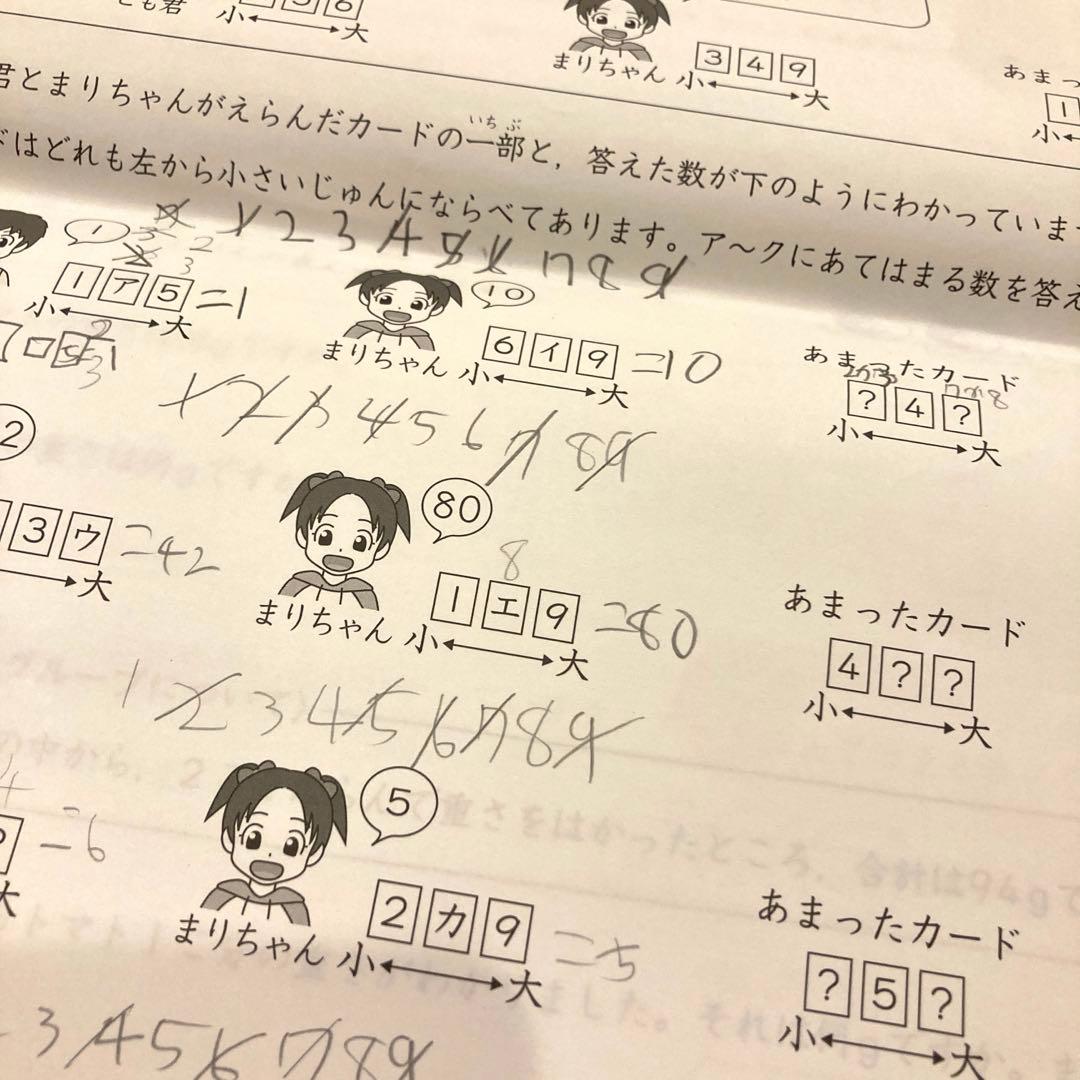 とも君
3 5 6
小 大
まりちゃん
3 4 9
小 大
あまっ
1
小
君とまりちゃんがえらんだカードの一部と，答えた数が下のようにわかっていま
いちぶ
ドはどれも左から小さいじゅんにならべてあります。ア〜クにあてはまる数を答え
1 2 3 4 5 6 7 8 9
1
1 ア 5 =1
小 大
10
まりちゃん
6 イ 9 =10
小 大
あまったカード
? 4 ?
小 大
1 2 3 4 5 6 7 8 9
2
3 ウ =42
大
80
8
まりちゃん
1 エ 9 =80
小 大
あまったカード
4 ? ?
小 大
1 2 3 4 5 6 7 8 9
4
=6
大
5
まりちゃん
2 カ 9 =5
小 大
あまったカード
? 5 ?
小 大
3 4 5 6 7 8 9